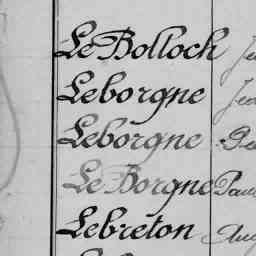 Le Bolloch
Leborgne
Leborgne
Le Borgne
Lebreton